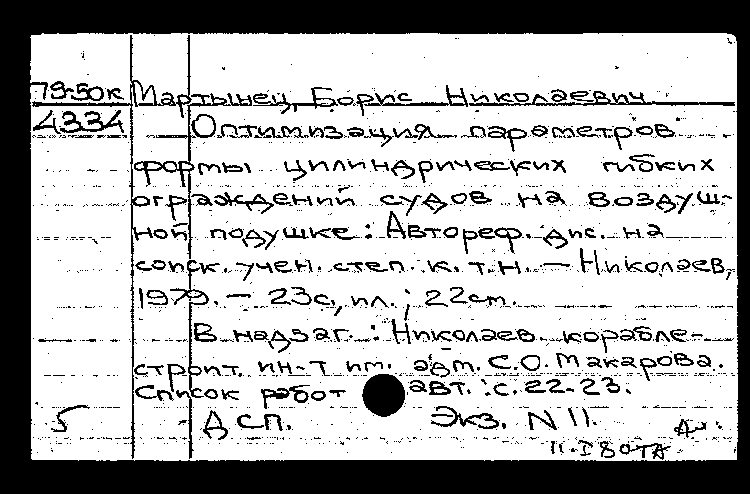 79-50к Мартынец, Борис Николаевич
4334 Оптимизация параметров
формы цилиндрических гибких
ограждений судов на воздуш-
ной подушке: Автореф. дис. на
соиск. учен. степ. к. т. н. — Николаев,
1979. — 23с, ил.; 22см.
В надзаг.: Николаев. корабле-
строит. ин-т им. адм. С.О. Макарова.
Список работ авт.: с. 22-23.
5 ДСП. Экз. N 11.